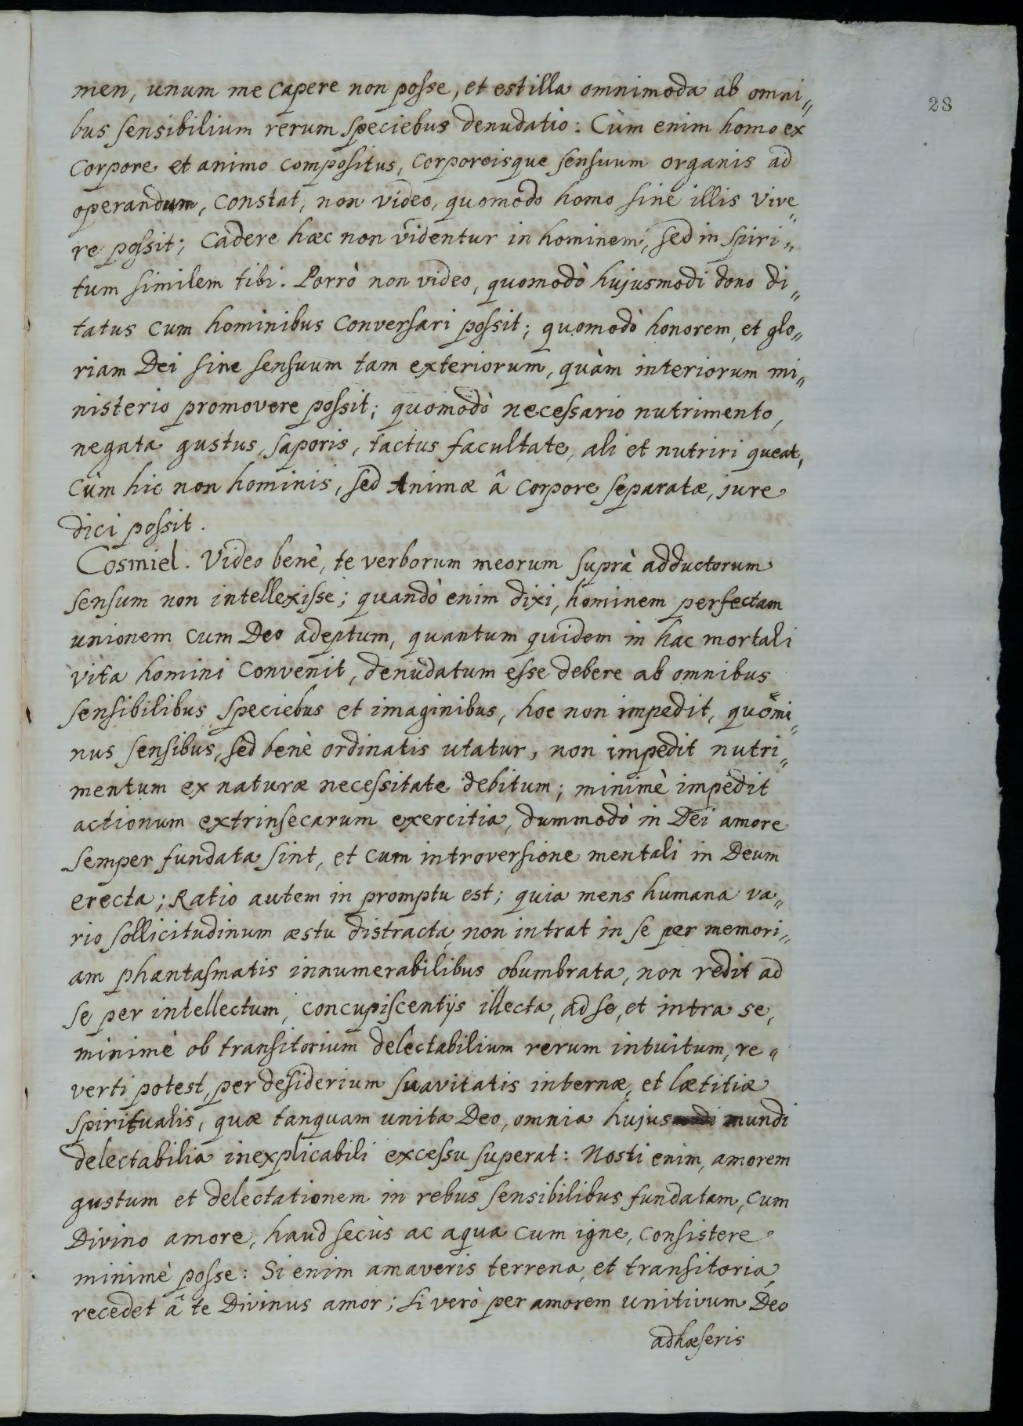 28
men, unum me capere non posse, et est illa omnimoda ab omni„
bus sensibilium rerum speciebus denudatio: Cùm enim homo ex
corpore et animo compositus, corporeisque sensuum organis ad
operandum, constat, non video, quomodo homo sine illis vive„
re possit; Cadere hæc non videntur in hominem, sed in spiri„
tum similem tibi. Porrò non video, quomodò hujusmodi dono di„
tatus cum hominibus conversari possit; quomodò honorem, et glo„
riam Dei sine sensuum tam exteriorum, quàm interiorum mi„
nisterio promovere possit; quomodò necessario nutrimento,
negata gustus, saporis, tactus facultate, ali et nutriri queat,
cùm hic non hominis, sed Animæ â corpore separatæ, jure
dici possit.
Cosmiel. Video benè, te verborum meorum suprà adductorum
sensum non intellexisse; quandò enim dixi, hominem perfectam
unionem cum Deo adeptum, quantum quidem in hac mortali
vita homini convenit, denudatum esse debere ab omnibus
sensibilibus speciebus et imaginibus, hoc non impedit, quŏmi„
nus sensibus, sed benè ordinatis utatur, non impedit nutri„
mentum ex naturæ necessitate debitum; minimè impedit
actionum extrinsecarum exercitia, dummodò in Dei amore
semper fundata sint, et cum introversione mentali in Deum
erecta; Ratio autem in promptu est; quia mens humana va„
rio sollicitudinum æstu distracta, non intrat in se per memori„
am phantasmatis innumerabilibus obumbrata, non redit ad
se per intellectum, concupiscentijs illecta, ad se, et intra se,
minimè ob transitorium delectabilium rerum intuitum, re„
verti potest, per desiderium suavitatis internæ, et lætitiæ
spiritualis, quæ tanquam unita Deo, omnia hujus mundi
delectabilia inexplicabili excessu superat: Nosti enim, amorem
gustum et delectationem in rebus sensibilibus fundatam, cum
Divino amore, haud secùs ac aqua cum igne, consistere
minimè posse: Si enim amaveris terrena, et transitoria,
recedet â te Divinus amor; si verò per amorem unitivum Deo
adhæseris